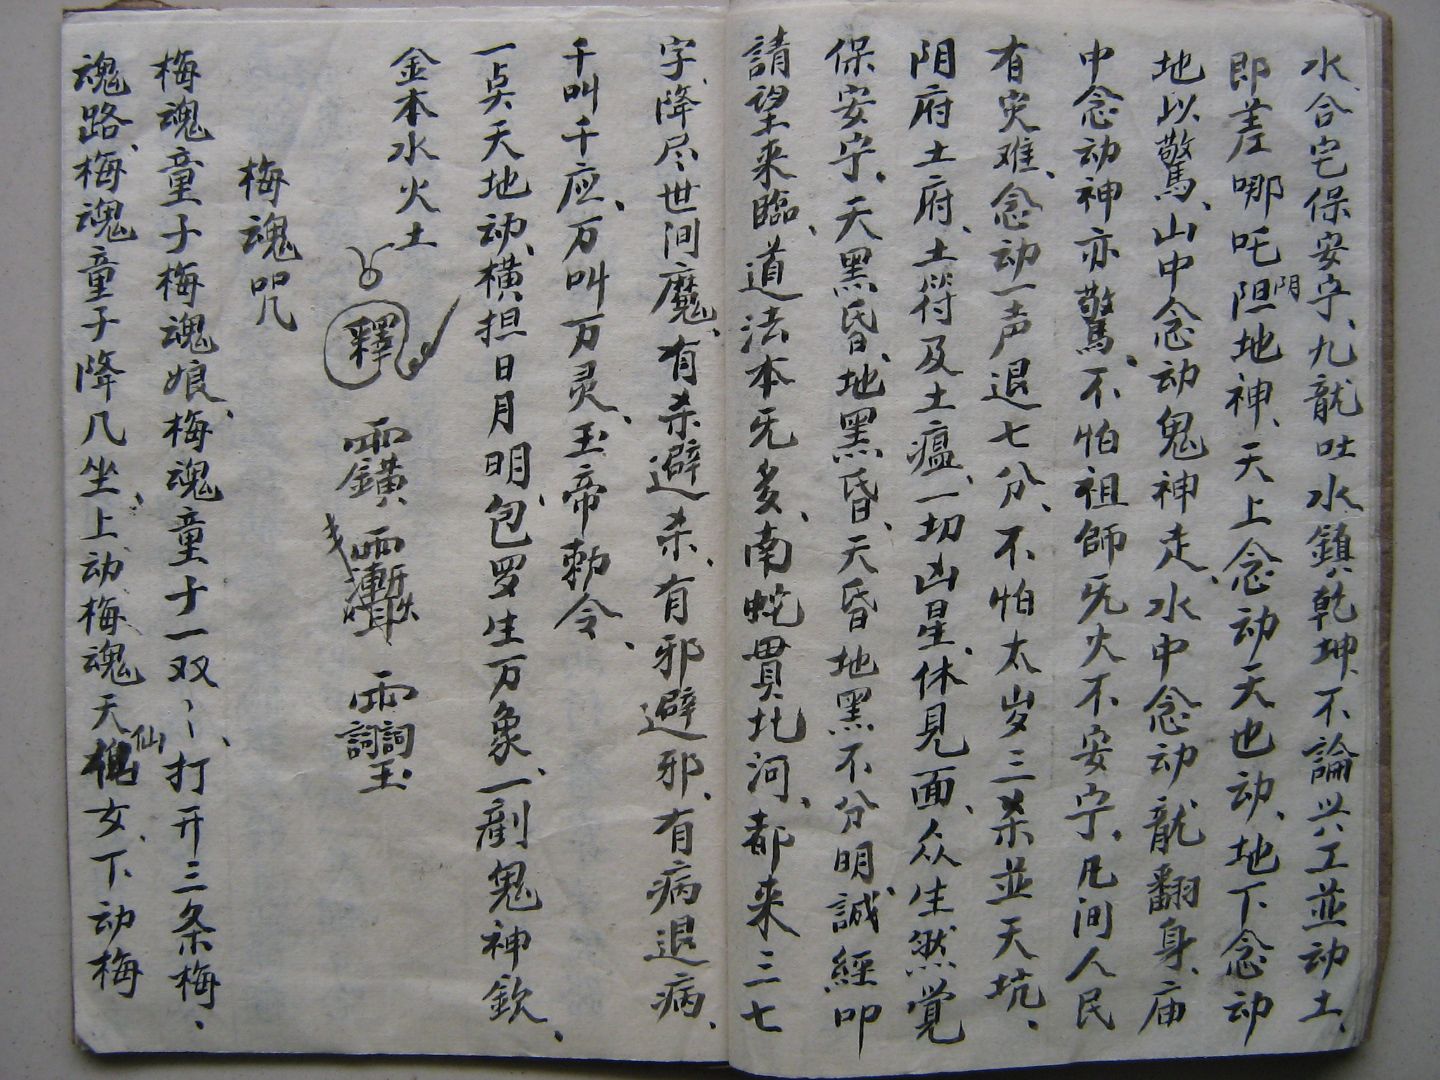 水、合宅保安宁、九龍吐水鎮乾坤、不論兴工並动土、
即差哪吒阴地神、天上念动天也动、地下念动
地以驚、山中念动鬼神走、水中念动龍翻身、庙
中念动神亦驚、不怕祖師旡火不安宁、凡间人民
有灾难、念动一声退七分、不怕太岁三杀並天坑、
阴府土府、土符及土瘟、一切凶星、休見面、众生然觉
保安宁、天黑昏、地黑昏、天昏地黑不分明、誠經叩
請望来臨、道法本旡多、南蛇貫北河、都来三七
字、降尽世间魔、有杀避杀、有邪避邪、有病退病、
千叫千应、万叫万灵、玉帝勅令、
一点天地动、横担日月明、包罗生万象、一劃鬼神欽、
金本水火土
釋
梅魂咒
梅魂童子梅魂娘、梅魂童子一双〻、打开三条梅、
魂路、梅魂童子降几坐、上动梅魂天仙女、下动梅